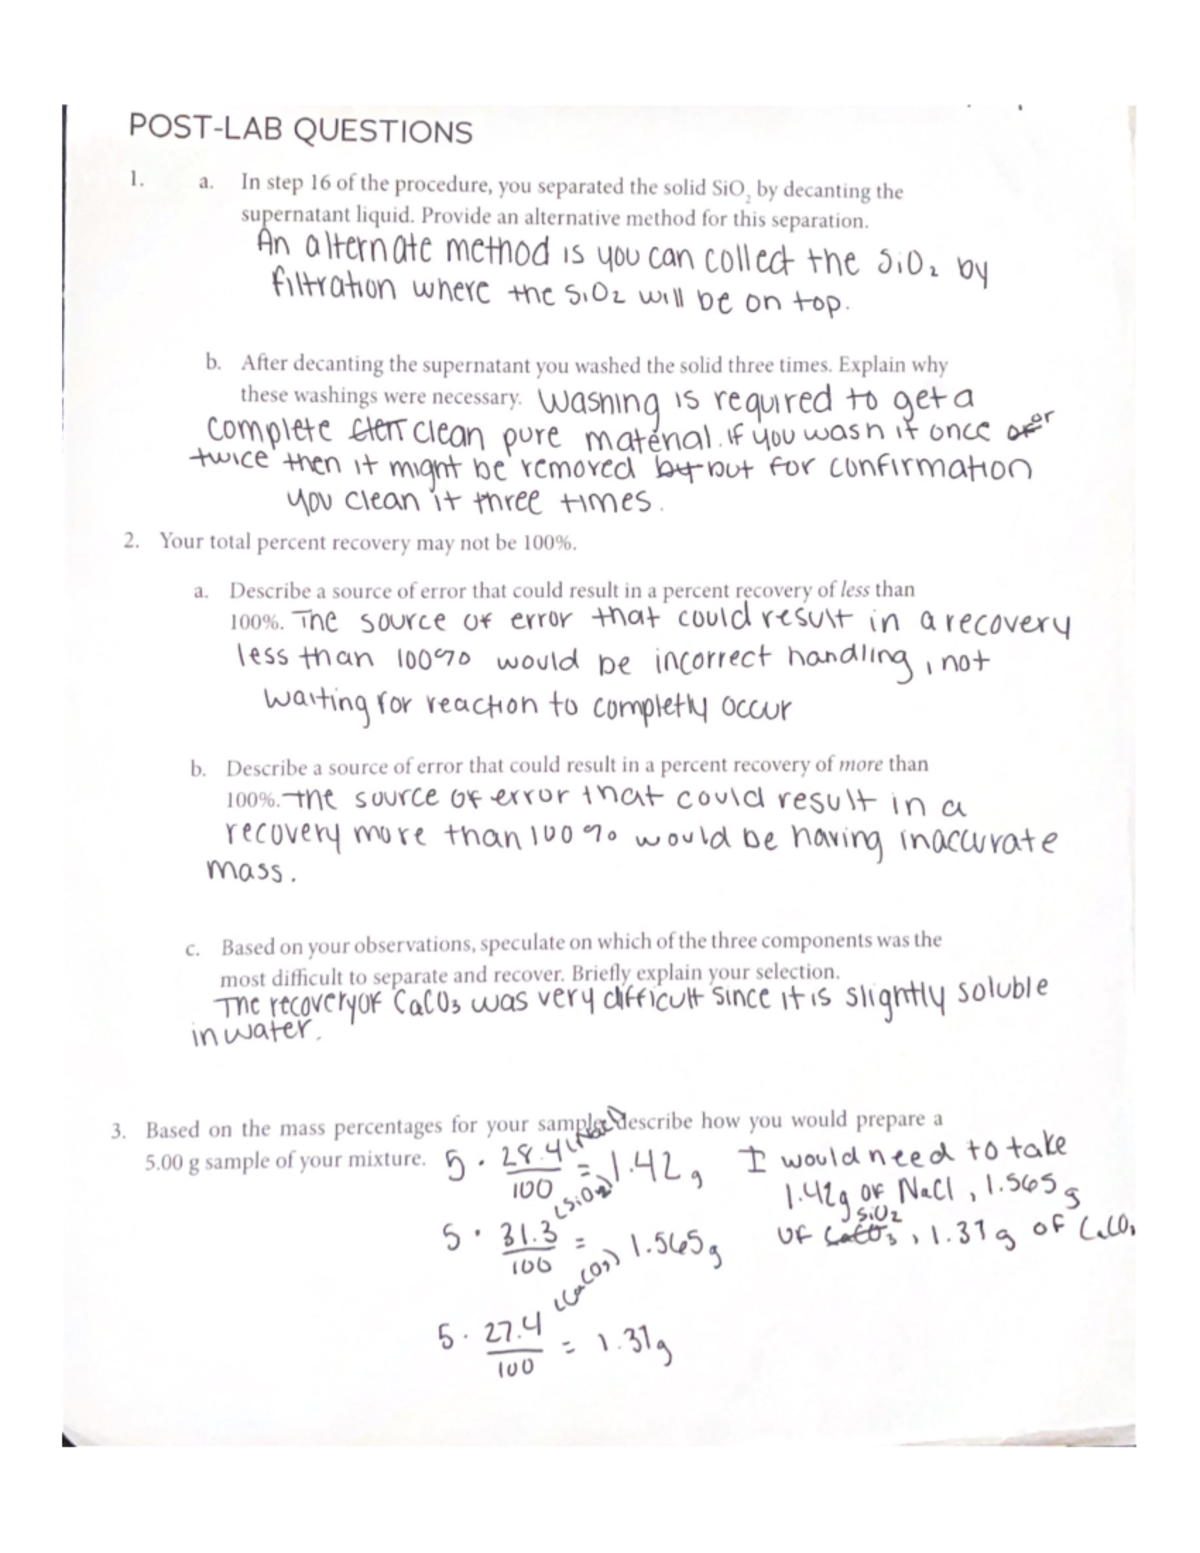 POST-LAB QUESTIONS
1. a. In step 16 of the procedure, you separated the solid SiO₂ by decanting the
supernatant liquid. Provide an alternative method for this separation.
An alternate method is you can collect the SiO₂ by
filtration where the SiO₂ will be on top.
b. After decanting the supernatant you washed the solid three times. Explain why
these washings were necessary. Washing is required to get a
complete clean pure material. if you wash it once or
twice then it might be removed but for confirmation
you clean it three times.
2. Your total percent recovery may not be 100%.
a. Describe a source of error that could result in a percent recovery of less than
100%. The source of error that could result in a recovery
less than 100% would be incorrect handling, not
waiting for reaction to completly occur
b. Describe a source of error that could result in a percent recovery of more than
100%. The source of error that could result in a
recovery more than 100% would be having inaccurate
mass.
c. Based on your observations, speculate on which of the three components was the
most difficult to separate and recover. Briefly explain your selection.
The recovery of CaCO₃ was very difficult since it is slightly soluble
in water.
3. Based on the mass percentages for your sample, describe how you would prepare a
5.00 g sample of your mixture. 5 · 28.4/100 (NaCl) = 1.42g I would need to take
1.42g of NaCl, 1.565g
5 · 31.3/100 (SiO₂) = 1.565g of CaCO₃ SiO₂, 1.37g of CaCO₃
5 · 27.4/100 (CaCO₃) = 1.37g